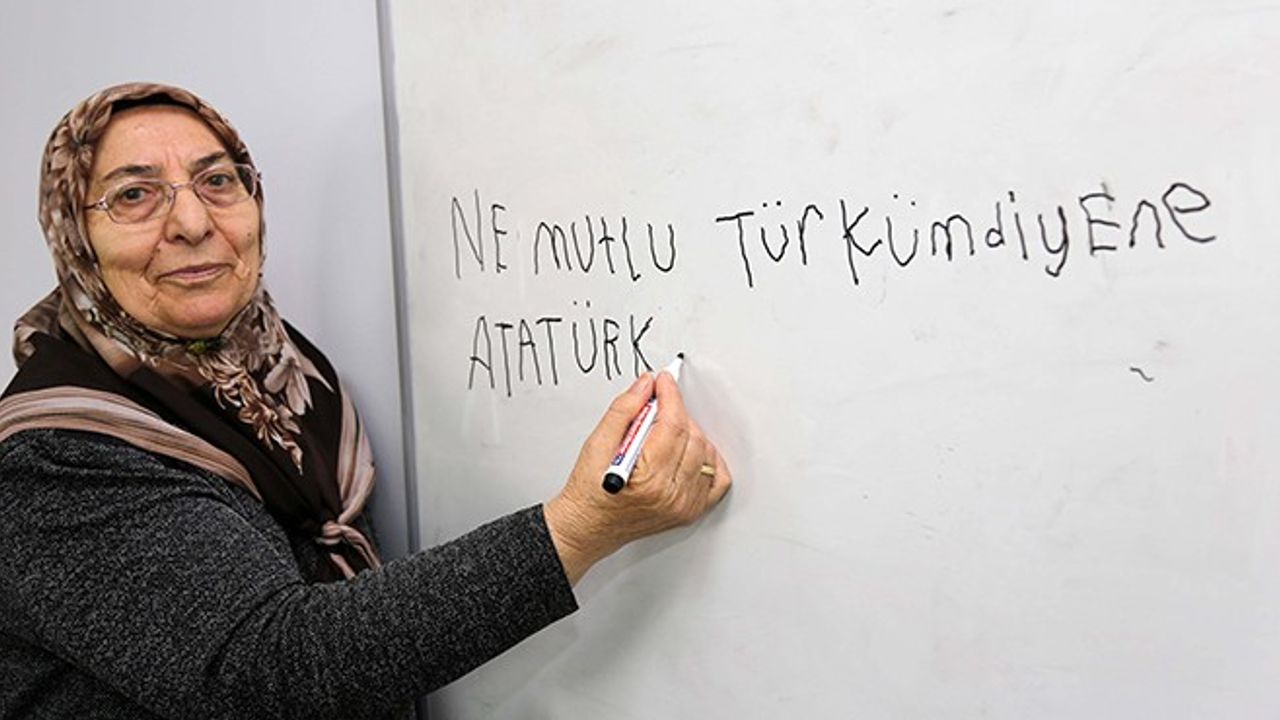 NE mutlu TürkümdiyEne
ATATÜRK